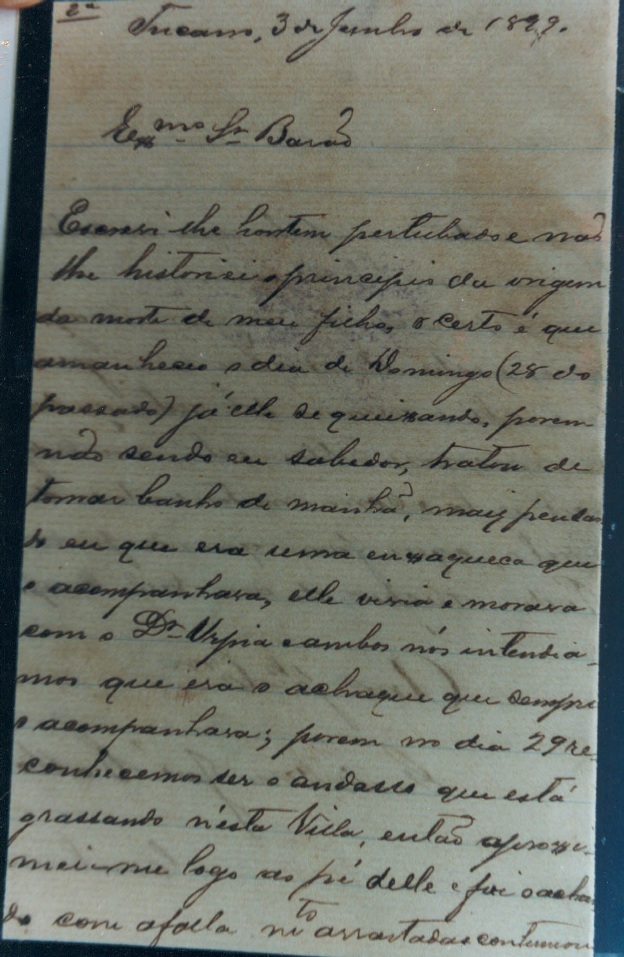 2ª
Tucano, 3 de Junho de 1899.
Exmo Sr Barão
Escrevi lhe hontem pertubado e não
lhe historiei o principio da origem
da morte de meu filho, o certo é que
amanheceo o dia de Domingo (28 do
passado) já elle se queixando, porem
não sendo eu sabedor, tratou de
tomar banho de manhã, mais pensan
do eu que era uma enxaqueca que
o acompanhava, elle vivia e morava
com o Dr Urpia e ambos nós intendia-
mos que era o achaque que sempre
o acompanhava; porem no dia 29 re-
conhecemos ser o andasso que está
grassando n'esta Villa, então aproxi-
mei-me logo ao pé delle e fui o achan
do com a falla mto arrastada e continuou